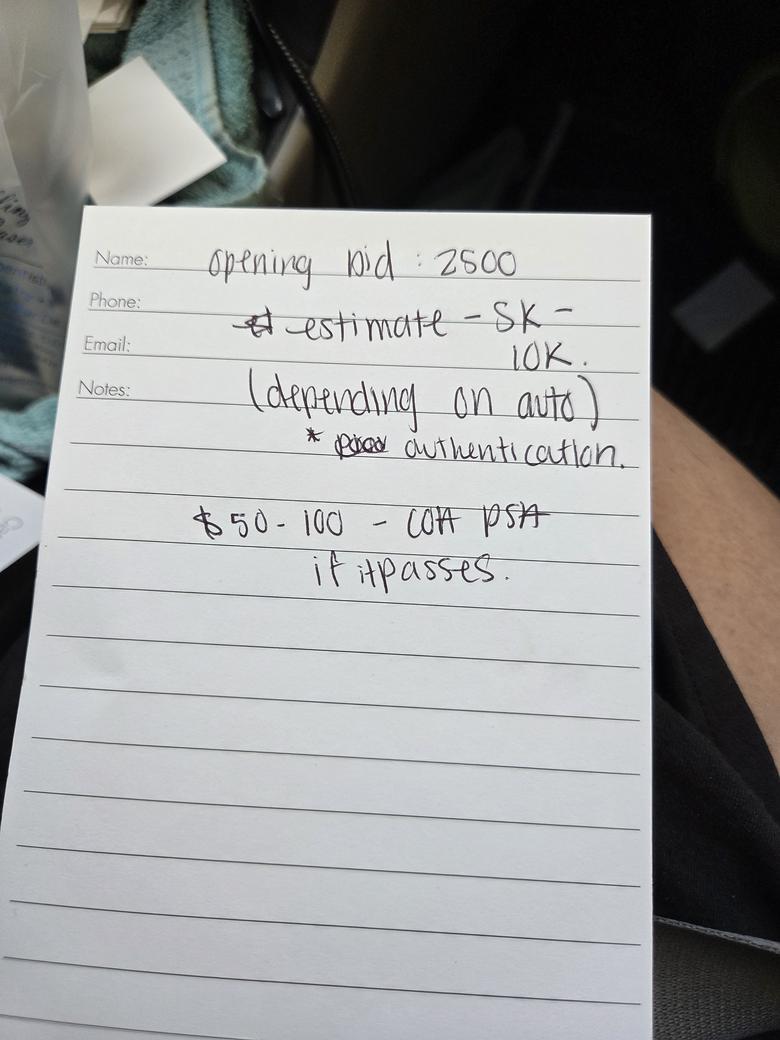 Name: opening bid : 2500
Phone:
estimate - 5K -
Email: 10K.
Notes: (depending on auto)
* authentication.
$50 - 100 - COA PSA
if it passes.